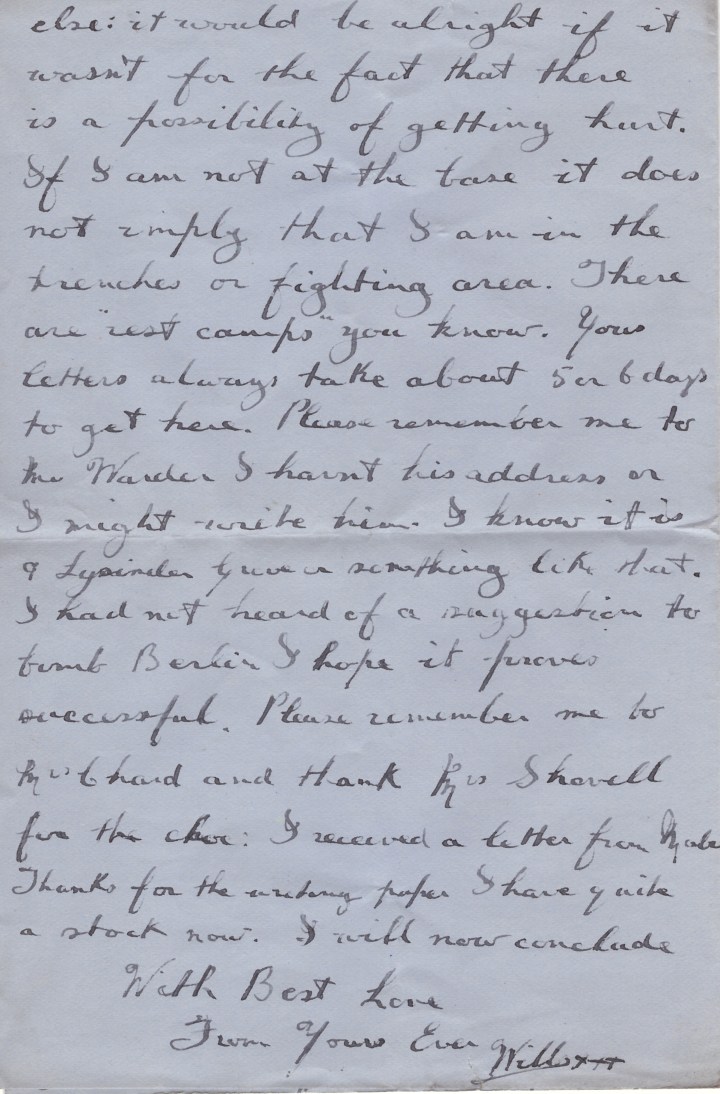 else: it would be alright if it
wasn't for the fact that there
is a possibility of getting hurt.
If I am not at the base it does
not imply that I am in the
trenches or fighting area. There
are "rest camps" you know. Your
letters always take about 5 or 6 days
to get here. Please remember me to
Mr Warder I havnt his address or
I might write him. I know it is
9 Lysinder Grove or something like that.
I had not heard of a suggestion to
bomb Berlin I hope it proves
successful. Please remember me to
Mrs Chard and thank Mrs Shovell
for the choc: I received a letter from
Thanks for the writing paper I have quite
a stock now. I will now conclude
With Best Love
From Yours Ever Will xxx